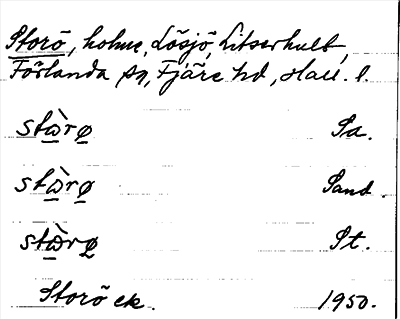 Storö, holme, Lösjö, Litserhult,
Förlanda sn, Fjäre hd, Hall. l.
stὼrø Sa.
stὼrø Sand.
stὼrø St.
Storö ek. 1950.